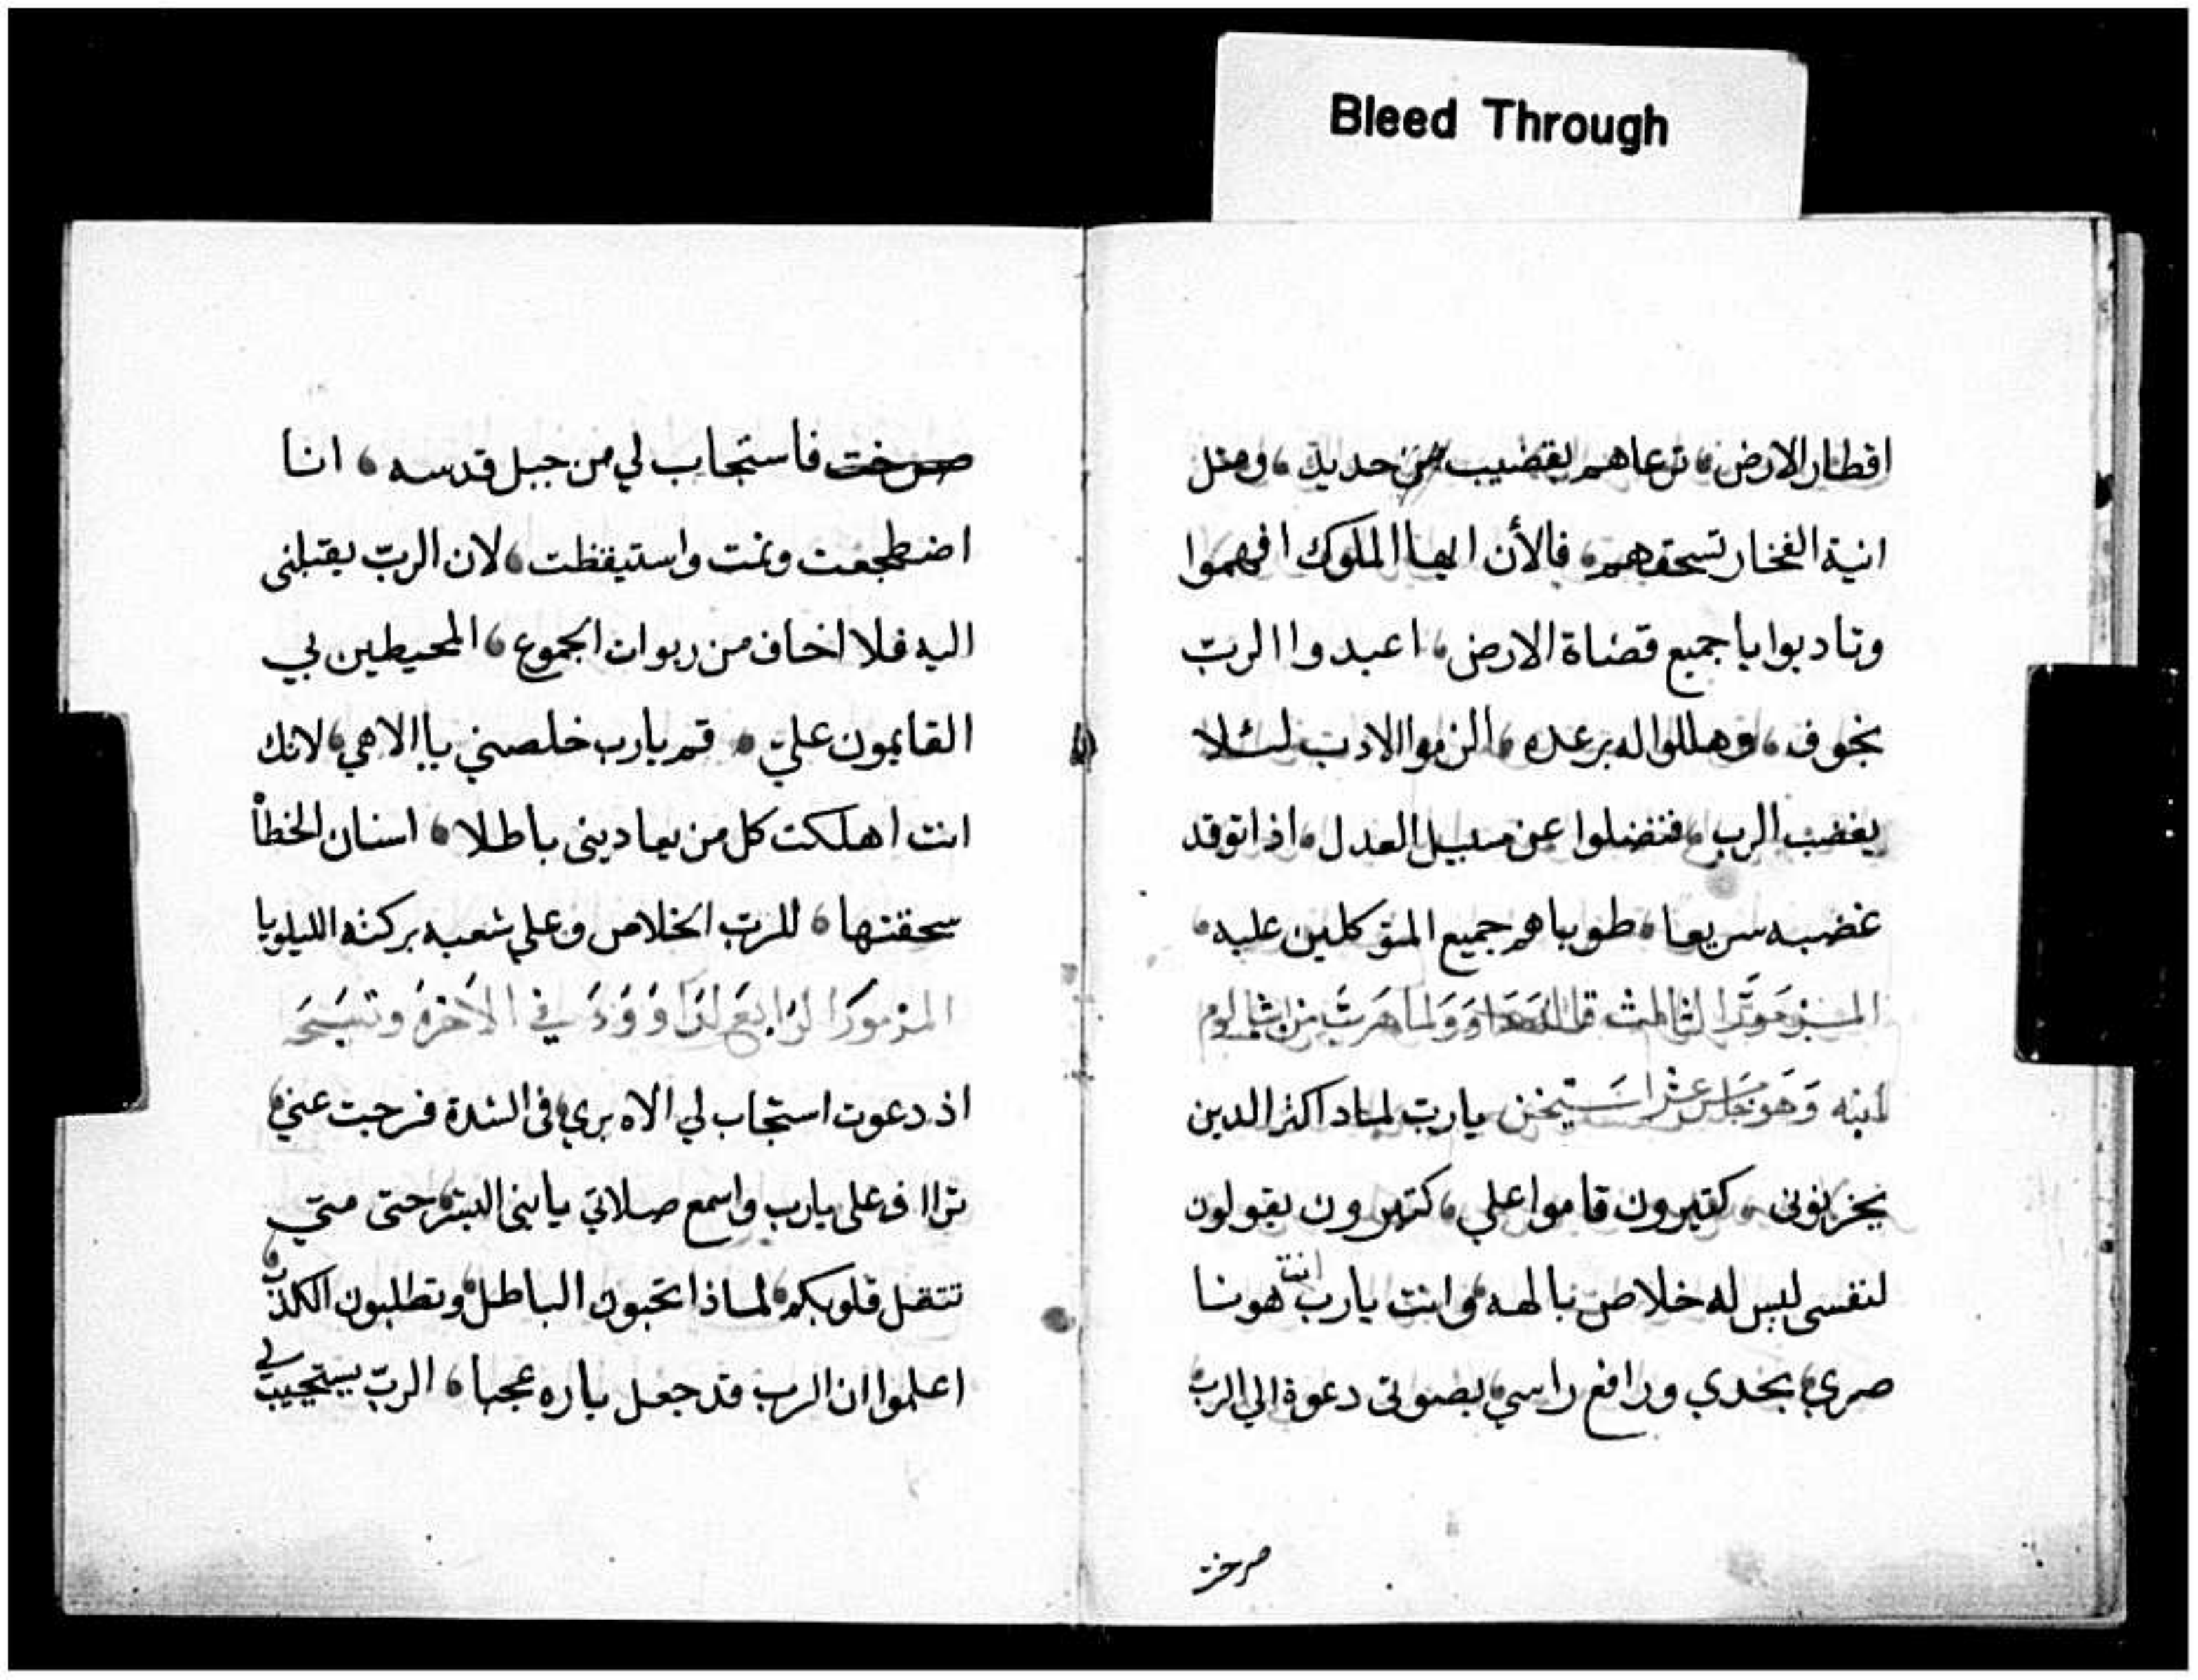 Bleed Through
اقطار الارض، ترعاهم بقضيب من حديد، ومثل
انية الفخار تسحقهم، فالأن ايها الملوك افهموا
وتادبوا يا جميع قضاة الارض، اعبدوا الربّ
بخوف، وهللوا له برعده، الزموا الادب لئلا
يغضب الرب، فتضلوا عن سبيل العدل، اذا توقد
غضبه سريعا، طوباهم جميع المتوكلين عليه،
المزمور الثالث لداوود لما هرب من ابشالوم
ابنه يارب لماد اكثر الدين
يحزنوني، كتيرون قاموا علي، كتيرون يقولون
لنفسي ليس له خلاص بالهه، وانت يارب انت هو نا
صري، بجدي ورافع راسي، بصوتى دعوة الي الرب
صرخت
صرخت فاستجاب لي من جبل قدسه، انا
اضطجعت ونمت واستيقظت، لان الربّ يقتبلنى
اليه فلا اخاف من ربوات الجموع، المحيطين بي
القايمون عليّ، قم يارب خلصني يا الاهي، لانك
انت اهلكت كل من يعادينى باطلا، اسنان الخطأ
سحقتها، للربّ الخلاص وعلي شعبه بركته الليلويا
المزمور الرابع لداوود في الاخرة وتسبحه
اذ دعوت استجاب لي الاه بري، في الشدة فرجت عني،
تراا ف على يارب واسمع صلاتي يا بنى البشر، حتى متي
تتقل قلوبكم، لماذا تحبون الباطل، وتطلبون الكذب،
اعلموا ان الرب قد جعل باره عجبا، الربّ يستجيب لي